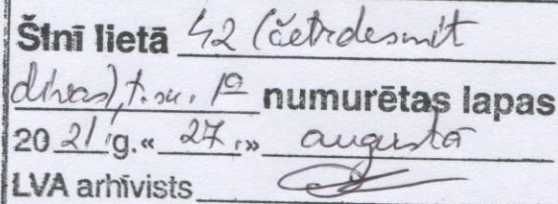 Šinī lietā 42 (četrdesmit
divas), t.sk. 1a numurētas lapas
20 21. g. « 27. » augustā
LVA arhīvists